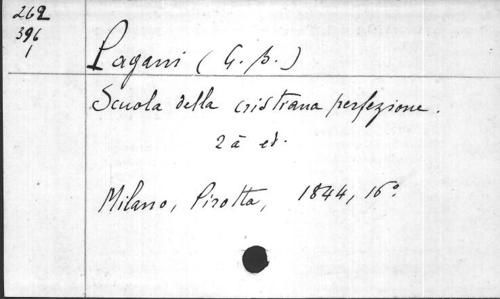 262
396
1
Pagani (G. B.)
Scuola della cristiana perfezione.
2a ed.
Milano, Pirotta, 1844, 16°